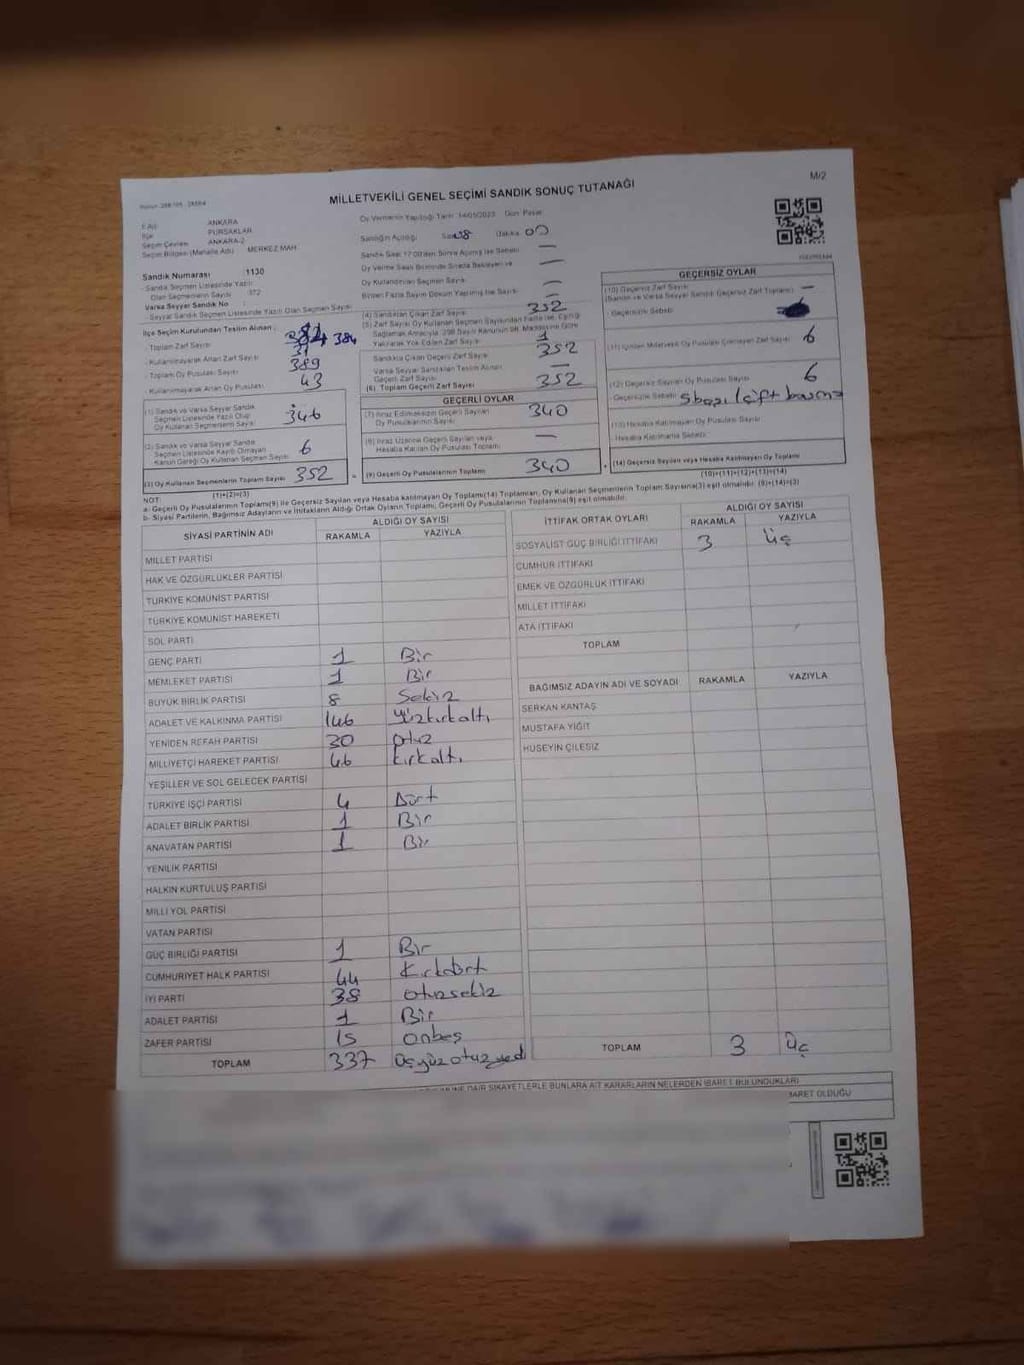 MİLLETVEKİLİ GENEL SEÇİMİ SANDIK SONUÇ TUTANAĞI
M/2
İl Adı: ANKARA
İlçe PURSAKLAR
Seçim Çevresi ANKARA-2
Seçim Bölgesi (Mahalle Adı) MERKEZ MAH.
Oy Vermenin Yapıldığı Tarih: 14/05/2023 Gün: Pazar
Sandığın Açıldığı Saat: 08 Dakika: 00
Sandık Saat 17:00'den Sonra Açılmış İse Sebebi: —
Oy Verme Saati Bitiminde Sırada Bekleyen ve
Oy Kullandırılan Seçmen Sayısı —
Birden Fazla Sayım Döküm Yapılmış İse Sayısı: —
Sandık Numarası 1130
- Sandık Seçmen Listesinde Yazılı
Olan Seçmenlerin Sayısı 372
Varsa Seyyar Sandık No :
- Seyyar Sandık Seçmen Listesinde Yazılı Olan Seçmen Sayısı:
İlçe Seçim Kurulundan Teslim Alınan :
- Toplam Zarf Sayısı 384
- Kullanılmayarak Artan Zarf Sayısı 31
- Toplam Oy Pusulası Sayısı 389
- Kullanılmayarak Artan Oy Pusulası 43
(1) Sandık ve Varsa Seyyar Sandık
Seçmen Listesinde Yazılı Olup
Oy Kullanan Seçmenlerin Sayısı 346
(2) Sandık ve Varsa Seyyar Sandık
Seçmen Listesinde Kayıtlı Olmayan
Kanun Gereği Oy Kullanan Seçmen Sayısı 6
(3) Oy Kullanan Seçmenlerin Toplam Sayısı 352
(1)+(2)=(3)
(4) Sandıktan Çıkan Zarf Sayısı 352
(5) Zarf Sayısı Oy Kullanan Seçmen Sayısından Fazla İse, Eşitliği
Sağlamak Amacıyla, 298 Sayılı Kanunun 98. Maddesine Göre
Yakılarak Yok Edilen Zarf Sayısı 1
Sandıkta Çıkan Geçerli Zarf Sayısı 352
Varsa Seyyar Sandıktan Teslim Alınan
Geçerli Zarf Sayısı —
(6) Toplam Geçerli Zarf Sayısı 352
GEÇERLİ OYLAR
(7) İtiraz Edilmeksizin Geçerli Sayılan
Oy Pusulalarının Sayısı 340
(8) İtiraz Üzerine Geçerli Sayılan veya
Hesaba Katılan Oy Pusulası Toplamı —
(9) Geçerli Oy Pusulalarının Toplamı 340
GEÇERSİZ OYLAR
(10) Geçersiz Zarf Sayısı
(Sandık ve Varsa Seyyar Sandık Geçersiz Zarf Toplamı) —
- Geçersizlik Sebebi:
(11) İçinden Milletvekili Oy Pusulası Çıkmayan Zarf Sayısı 6
(12) Geçersiz Sayılan Oy Pusulası Sayısı 6
- Geçersizlik Sebebi: çift basma
(13) Hesaba Katılmayan Oy Pusulası Sayısı
- Hesaba Katılmama Sebebi:
(14) Geçersiz Sayılan veya Hesaba Katılmayan Oy Toplamı
(10)+(11)+(12)+(13)=(14)
NOT:
a- Geçerli Oy Pusulalarının Toplamı(9) ile Geçersiz Sayılan veya Hesaba katılmayan Oy Toplamı(14) Toplamları, Oy Kullanan Seçmenlerin Toplam Sayısına(3) eşit olmalıdır. (9)+(14)=(3)
b- Siyasi Partilerin, Bağımsız Adayların ve İttifakların Aldığı Ortak Oyların Toplamı, Geçerli Oy Pusulalarının Toplamına(9) eşit olmalıdır.
SİYASİ PARTİNİN ADI ALDIĞI OY SAYISI
RAKAMLA YAZIYLA
MİLLET PARTİSİ
HAK VE ÖZGÜRLÜKLER PARTİSİ
TÜRKİYE KOMÜNİST PARTİSİ
TÜRKİYE KOMÜNİST HAREKETİ
SOL PARTİ
GENÇ PARTİ 1 Bir
MEMLEKET PARTİSİ 1 Bir
BÜYÜK BİRLİK PARTİSİ 8 Sekiz
ADALET VE KALKINMA PARTİSİ 146 Yüzkırkaltı
YENİDEN REFAH PARTİSİ 30 otuz
MİLLİYETÇİ HAREKET PARTİSİ 46 Kırkaltı
YEŞİLLER VE SOL GELECEK PARTİSİ
TÜRKİYE İŞÇİ PARTİSİ 4 Dört
ADALET BİRLİK PARTİSİ 1 Bir
ANAVATAN PARTİSİ 1 Bir
YENİLİK PARTİSİ
HALKIN KURTULUŞ PARTİSİ
MİLLİ YOL PARTİSİ
VATAN PARTİSİ
GÜÇ BİRLİĞİ PARTİSİ 1 Bir
CUMHURİYET HALK PARTİSİ 44 Kırkdört
İYİ PARTİ 38 otuzsekiz
ADALET PARTİSİ 1 Bir
ZAFER PARTİSİ 15 onbeş
TOPLAM 337 üçyüzotuzyedi
İTTİFAK ORTAK OYLARI ALDIĞI OY SAYISI
RAKAMLA YAZIYLA
SOSYALİST GÜÇ BİRLİĞİ İTTİFAKI 3 üç
CUMHUR İTTİFAKI
EMEK VE ÖZGÜRLÜK İTTİFAKI
MİLLET İTTİFAKI
ATA İTTİFAKI
TOPLAM
BAĞIMSIZ ADAYIN ADI VE SOYADI RAKAMLA YAZIYLA
SERKAN KANTAŞ
MUSTAFA YİĞİT
HÜSEYİN ÇİLESİZ
TOPLAM 3 üç
DAİR ŞİKAYETLERLE BUNLARA AİT KARARLARIN NELERDEN İBARET BULUNDUKLARI
İBARET OLDUĞU